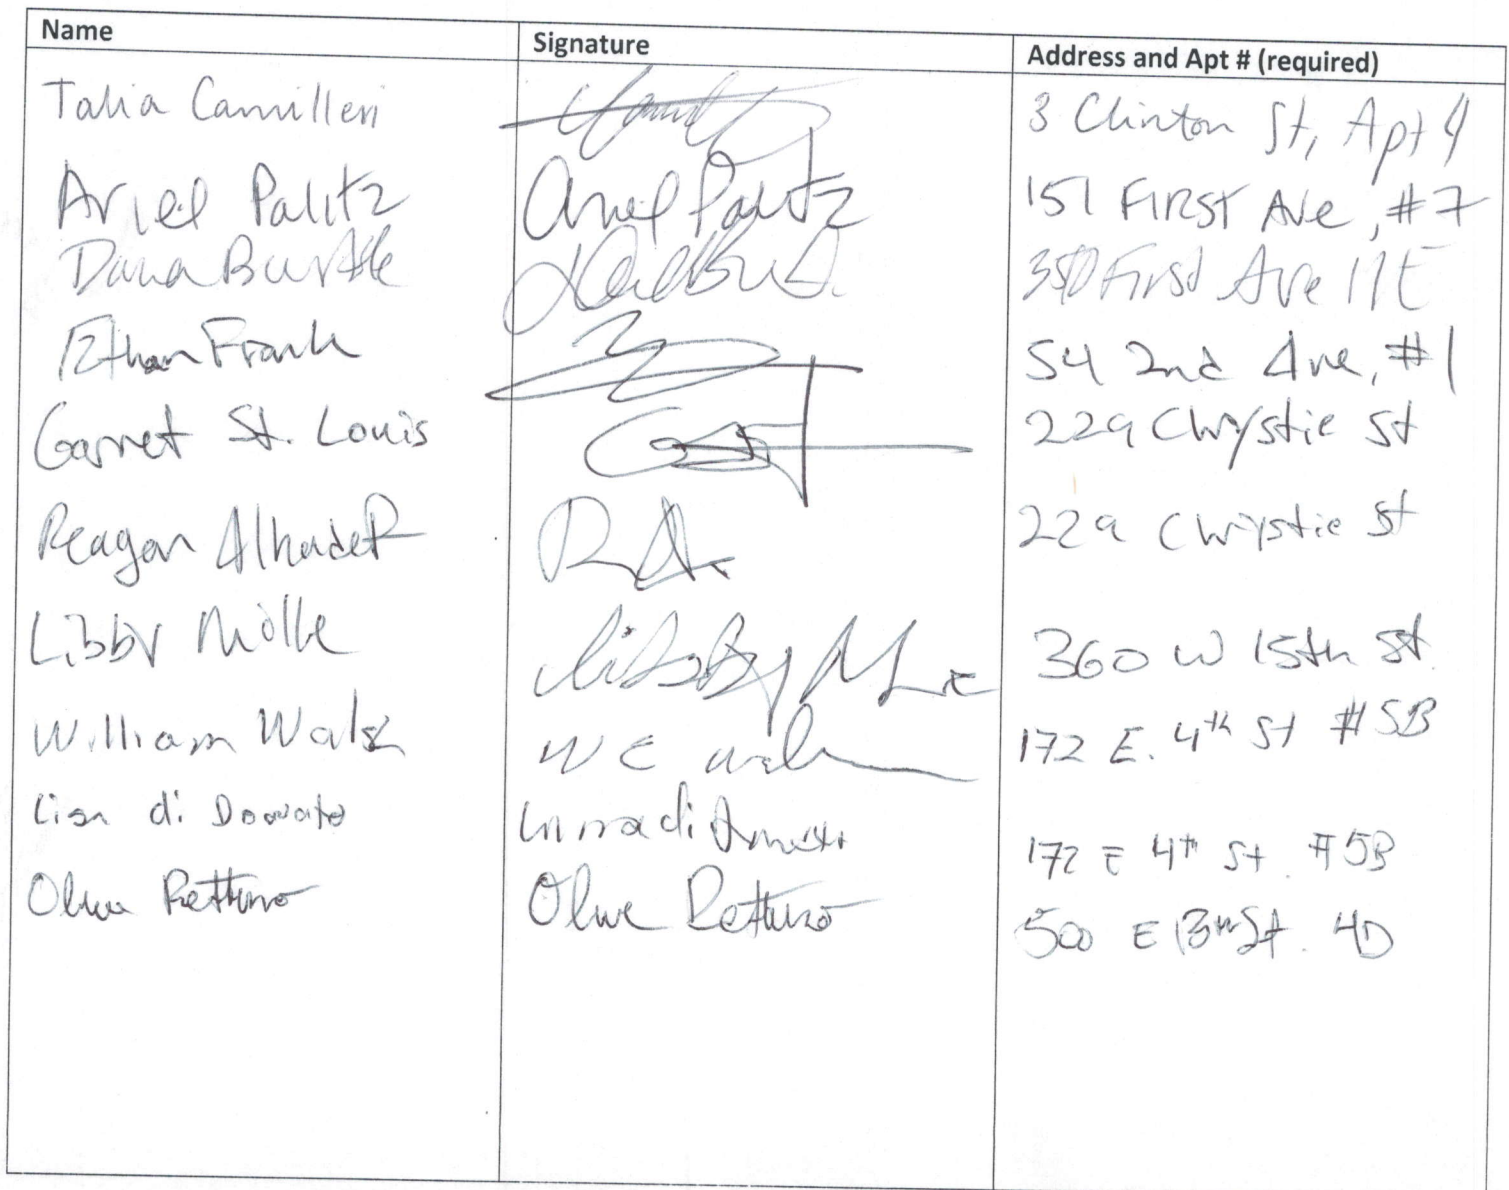 Name Signature Address and Apt # (required)
Talia Camilleri 3 Clinton St, Apt 4
Ariel Palitz Ariel Palitz 151 FIRST Ave, #7
Dana 350 First Ave 11E
Ethan Frank 54 2nd Ave, #1
Garret St. Louis 229 Chrystie St
Reagan Alhadeff 229 Chrystie St
Libby Molle Libby 360 W 15th St.
William Walsh W E 172 E. 4th St #5B
Lisa di Donato 172 E 4th St. #5B
Olive Retturo Olive Retturo 500 E 13th St. 4D